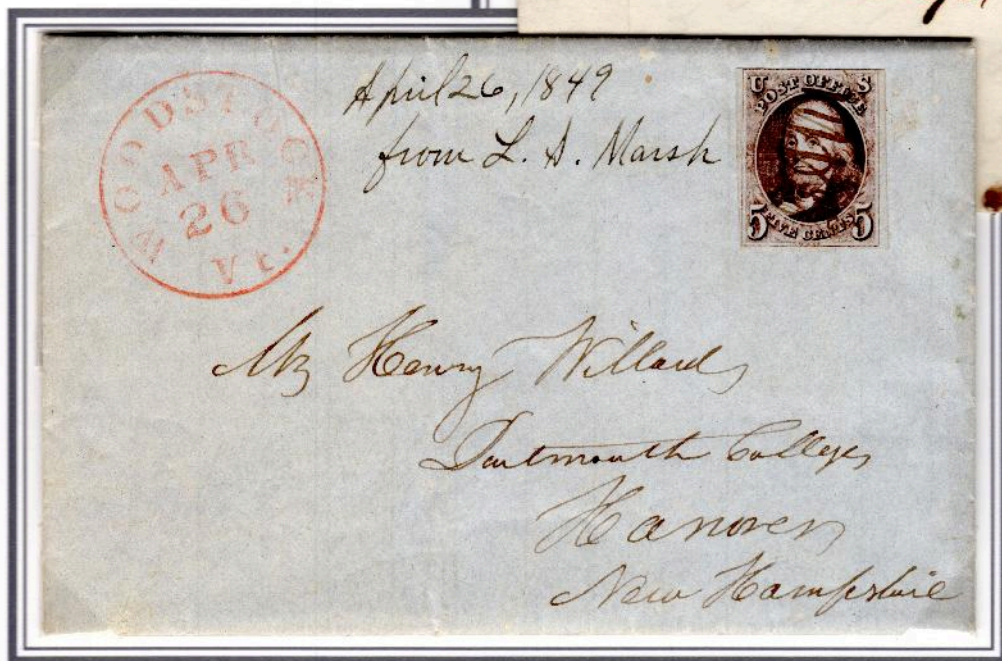 WOODSTOCK
APR
26
VT.
April 26, 1849
from L. S. Marsh
U S
POST OFFICE
5 FIVE CENTS 5
PAID
Mr Henry Willard
Dartmouth College
Hanover
New Hampshire